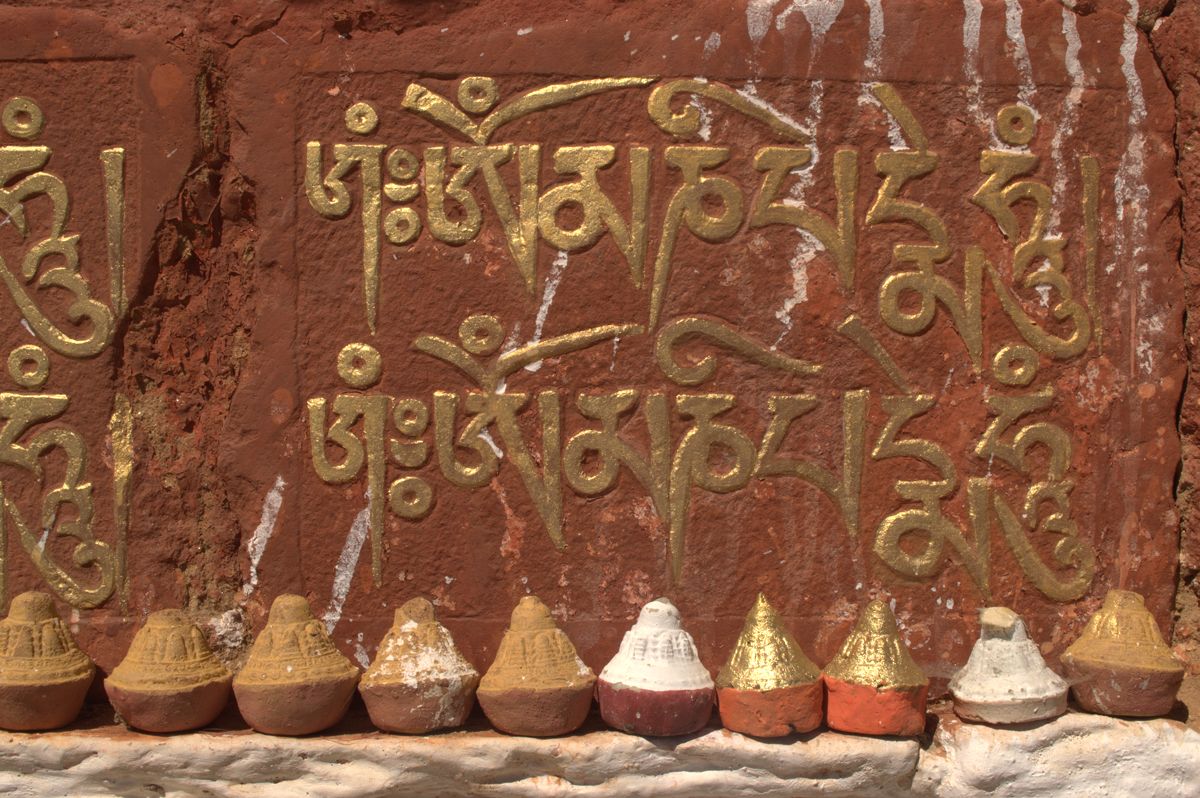 ཧཱུཾ།
ཧཱུཾ།
༄༅༔ཨོཾམཎིཔདྨེཧཱུཾ།
༄༅༔ཨོཾམཎིཔདྨེཧཱུཾ